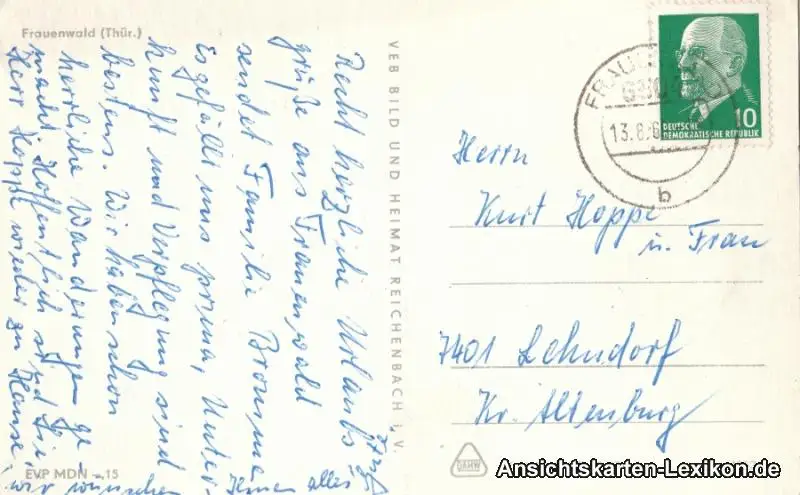 Frauenwald (Thür.)
Recht herzliche Urlaubs
grüße aus Frauenwald
sendet Familie Bromme
Es gefällt uns prima, Unter-
kunft und Verpflegung sind
bestens. Wir haben schon
herrliche Wanderungen ge-
macht. Hoffentlich sind Sie,
Herr Hoppe wieder zu Hause,
wir wünschen Ihnen alles
EVP MDN -,15
VEB BILD UND HEIMAT REICHENBACH i. V.
10
DEUTSCHE
DEMOKRATISCHE REPUBLIK
13.8.6
b
Herrn
Kurt Hoppe
u. Frau
7401 Lehndorf
Kr. Altenburg
DAMW
Ansichtskarten-Lexikon.de